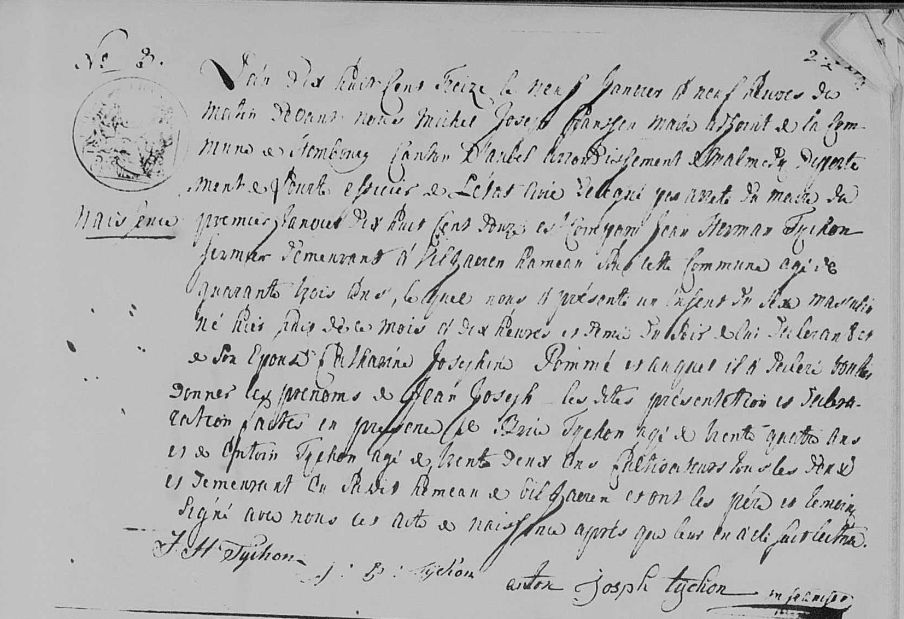 No 3.
L'an dix huit cent treize le neuf janvier à neuf heures du
matin devant nous Michel Joseph maire adjoint de la Com-
mune de Hombourg Canton d'aubel arrondissement de Malmedy departe
ment de l'ourte officier de l'état civil delegué par arreté du maire du
naissence
premier janvier dix huit cent douze est comparu jean Herman Tychon
fermier demeurant à hameau de cette Commune agé de
quarante trois ans, lequel nous a présenté un enfent du sexe masculin
né huit de ce mois à dix héures et demie du soir de lui déclarant et
de son Epouse Catharine Josephine Pommé et auquel il a declaré vouloir
donner les prénoms de Jean Joseph les dites présentation et decla-
ration faites en presence de Tychon agé de trente quatre ans
et de Antoin Tychon agé de trente deux ans Cultivateurs tous les deux
et demeurant au susdit hameau de et ont les père et temoins
Signé avec nous cet acte de naissence après que leur en a eté fait lectur.
J H Tychon
J: B: Tychon
anton Joseph tychon